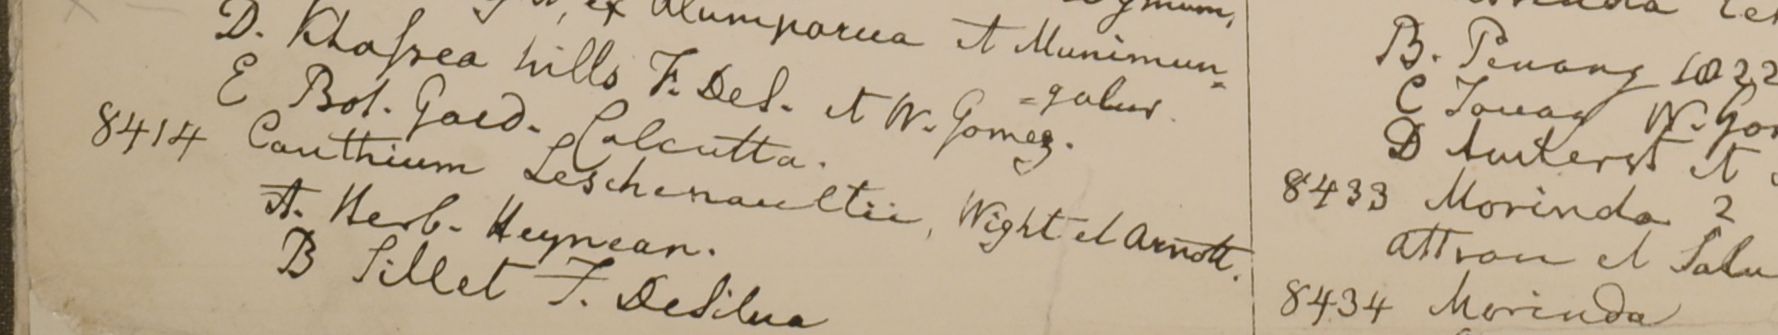 ex Alumporua et Munimun-
=galur.
D. Khasrea hills F. DeS. et W. Gomez.
E Bot. Gard. Calcutta.
8414 Canthium Leschenaultii, Wight et Arnott.
A. Herb. Heynean.
B Sillet F. DeSilva
B. Penang 1822
C Tavay W. Go
D Amherst et
8433 Morinda 2
Attran et Salu
8434 Morinda